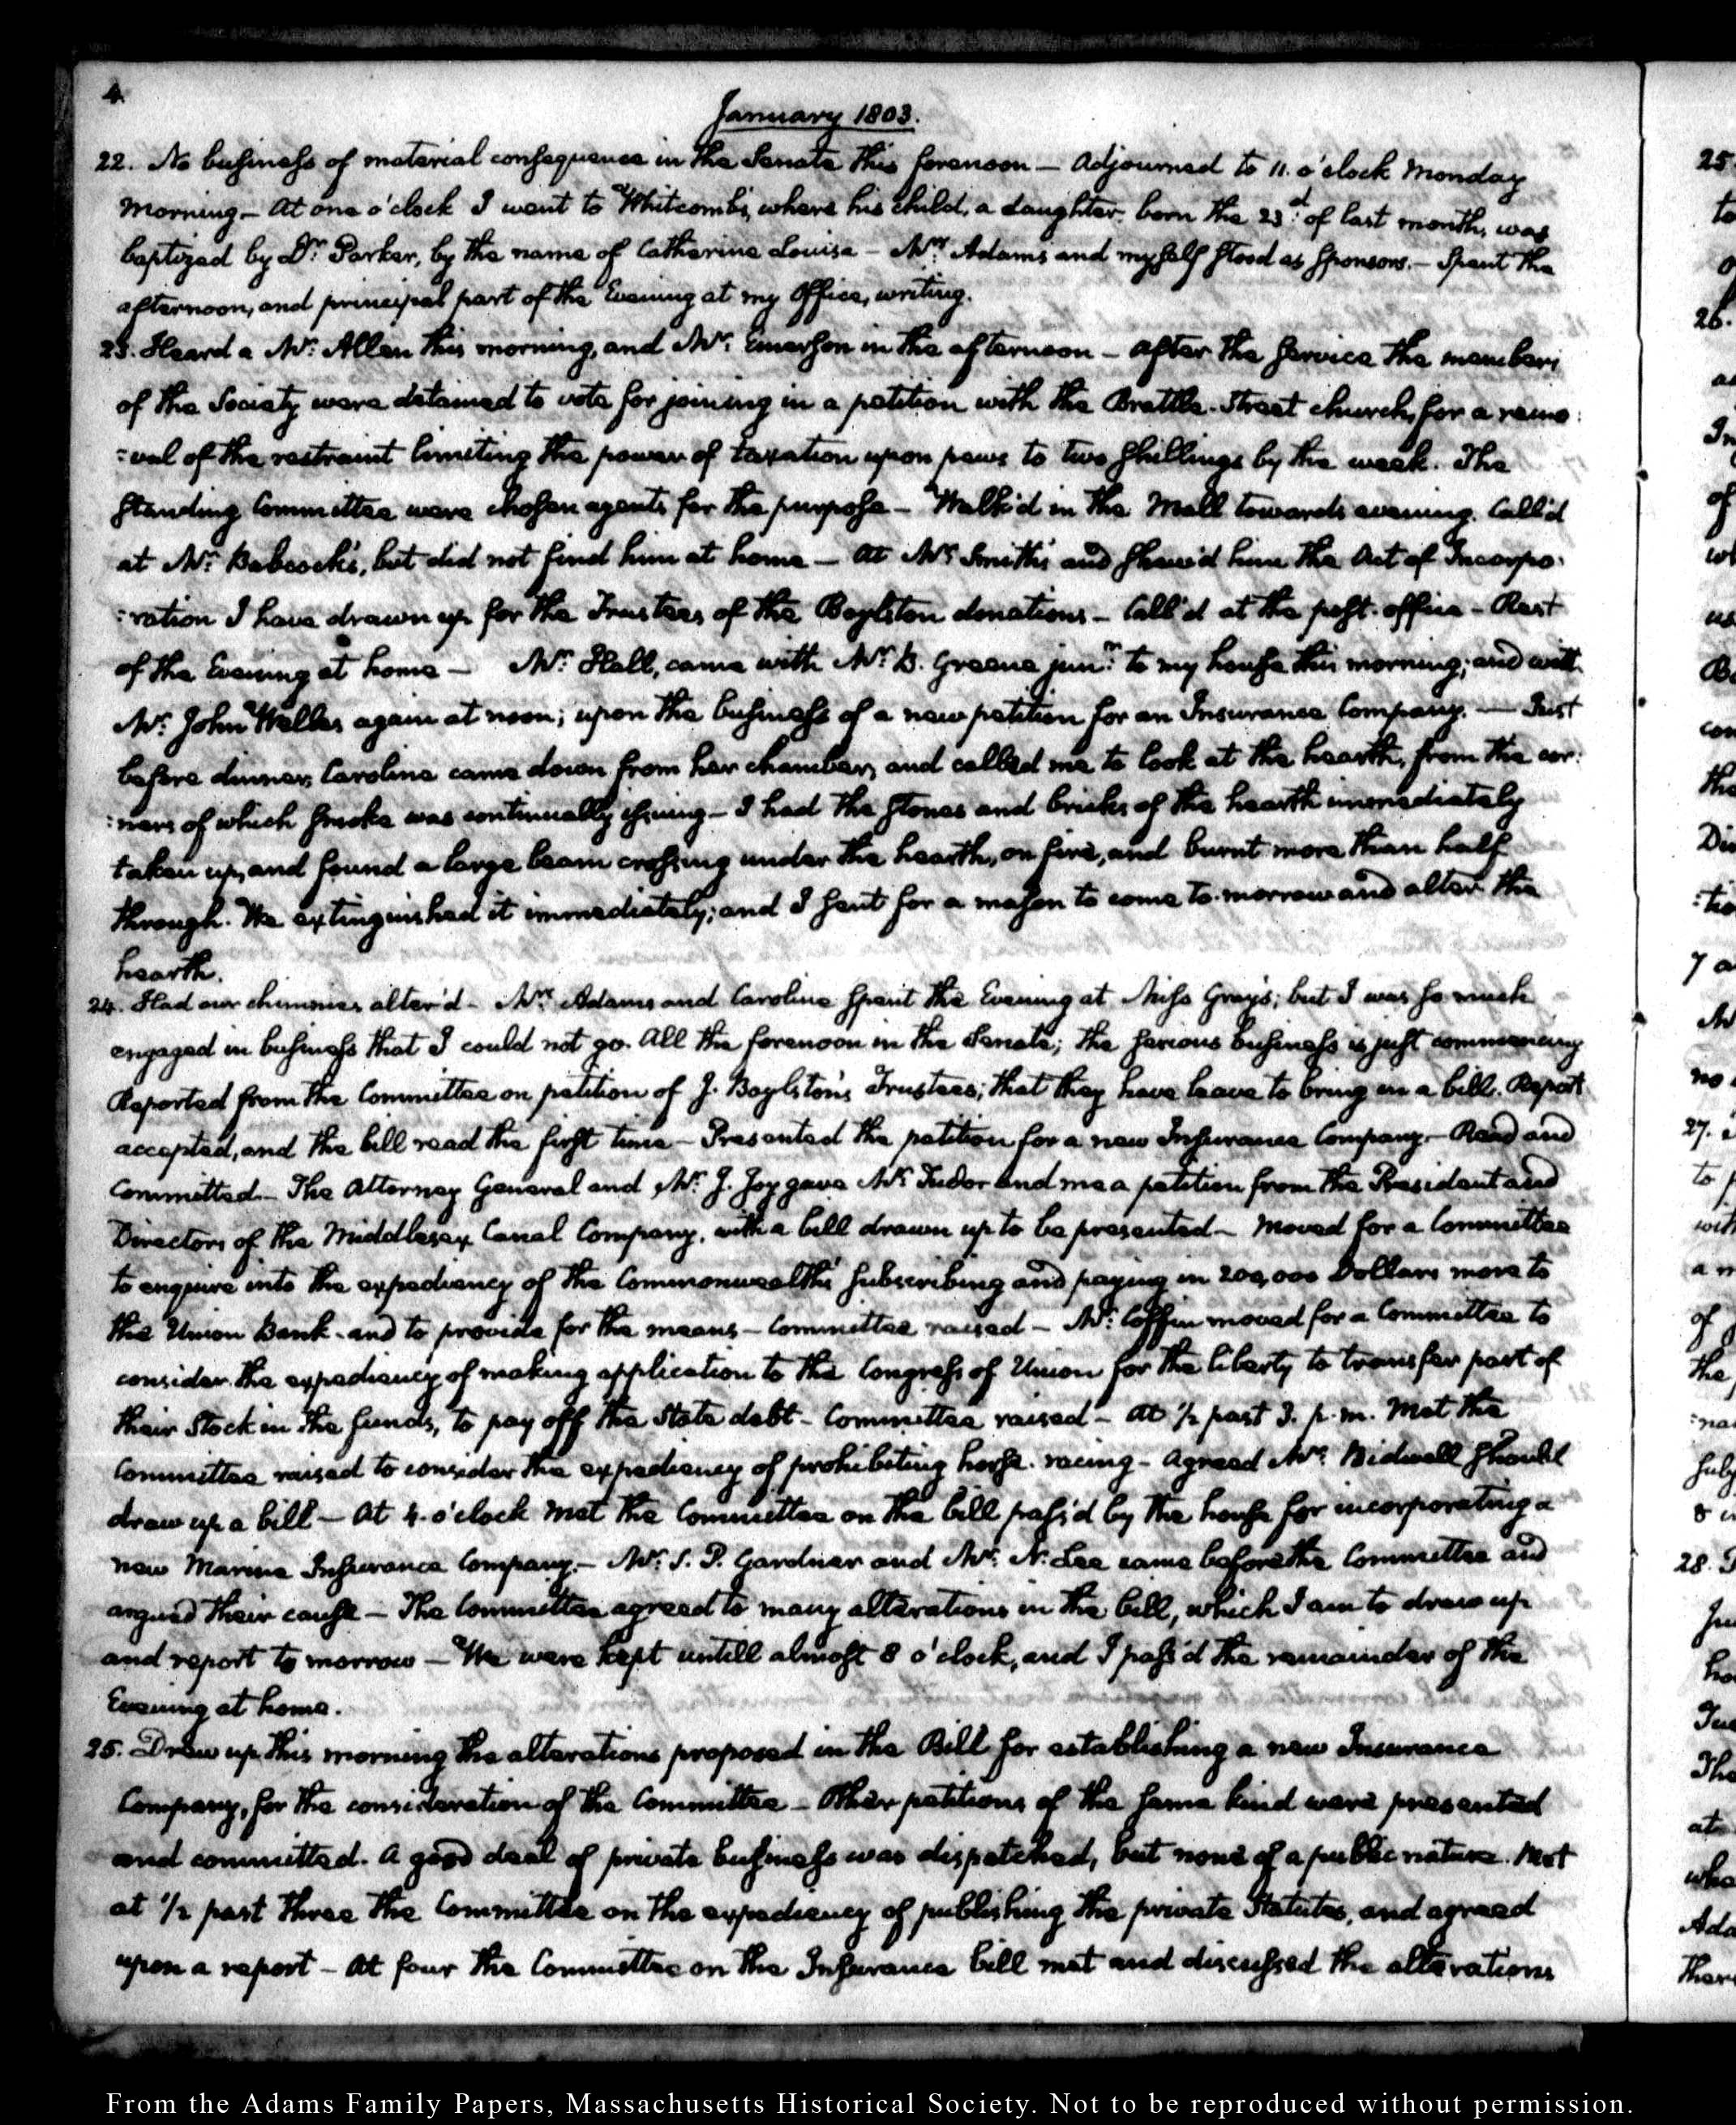 4.
January 1803.
22. No business of material consequence in the Senate this forenoon — Adjourned to 11. o'clock Monday
morning — At one o'clock I went to Whitcomb's, where his child, a daughter, born the 23d. of last month, was
baptized by Dr. Parker, by the name of Catharine Louisa — Mrs. Adams and myself stood as sponsors. — Spent the
afternoon, and principal part of the Evening at my Office, writing.
23. Heard a Mr. Allen this morning, and Mr. Emerson in the afternoon — After the service the members
of the Society were detained to vote for joining in a petition with the Brattle-Street church, for a remo:
:val of the restraint limiting the power of taxation upon pews to two shillings by the week. The
standing Committee were chosen agents for the purpose — Walk'd in the Mall towards evening. Call'd
at Mr. Babcock's, but did not find him at home — At Mr. Smith's and shew'd him the Act of Incorpo:
:ration I have drawn up for the Trustees of the Boylston donations — Call'd at the post-office — Rest
of the Evening at home — Mr. Hall, came with Mr. B. Greene junr. to my house this morning; and with
Mr. John Welles again at noon; upon the business of a new petition for an Insurance Company. — Just
before dinner, Caroline came down from her chamber, and called me to look at the hearth, from the cor:
:ners of which smoke was continually issuing — I had the stones and bricks of the hearth immediately
taken up, and found a large beam crossing under the hearth, on fire, and burnt more than half
through. We extinguished it immediately; and I sent for a mason to come to-morrow and alter the
hearth.
24. Had our chimnies alter'd — Mrs. Adams and Caroline spent the Evening at Miss Gray's; but I was so much
engaged in business that I could not go. All the forenoon in the Senate; the serious business is just commencing
Reported from the Committee on petition of J. Boylston's Trustees, that they have leave to bring in a bill. Report
accepted, and the bill read the first time — Presented the petition for a new Insurance Company. — Read and
Committed — The Attorney General and Mr. J. Joy gave Mr. Tudor and me a petition from the President and
Directors of the Middlesex Canal Company, with a bill drawn up to be presented — Moved for a Committee
to enquire into the expediency of the Commonwealth's subscribing and paying in 200,000 Dollars more to
the Union Bank — and to provide for the means — Committee raised — Mr. Coffin moved for a Committee to
consider the expediency of making application to the Congress of Union for the liberty to transfer part of
their Stock in the funds, to pay off the State debt — Committee raised — At ½ past 3. p.m. Met the
Committee raised to consider the expediency of prohibiting horse-racing — Agreed Mr. Bidwell should
draw up a bill — At 4. o'clock met the Committee on the bill pass'd by the house for incorporating a
new Marine Insurance Company. — Mr. S. P. Gardner and Mr. N. Lee came before the Committee and
argued their cause — The Committee agreed to many alterations in the bill, which I am to draw up
and report to morrow — We were kept untill almost 8 o'clock, and I pass'd the remainder of the
Evening at home.
25. Drew up this morning the alterations proposed in the Bill for establishing a new Insurance
Company, for the consideration of the Committee — Other petitions of the same kind were presented
and committed. A good deal of private business was dispatched, but none of a public nature. Met
at ½ past three the Committee on the expediency of publishing the private Statutes, and agreed
upon a report — At four the Committee on the Insurance bill met and discussed the alterations
From the Adams Family Papers, Massachusetts Historical Society. Not to be reproduced without permission.